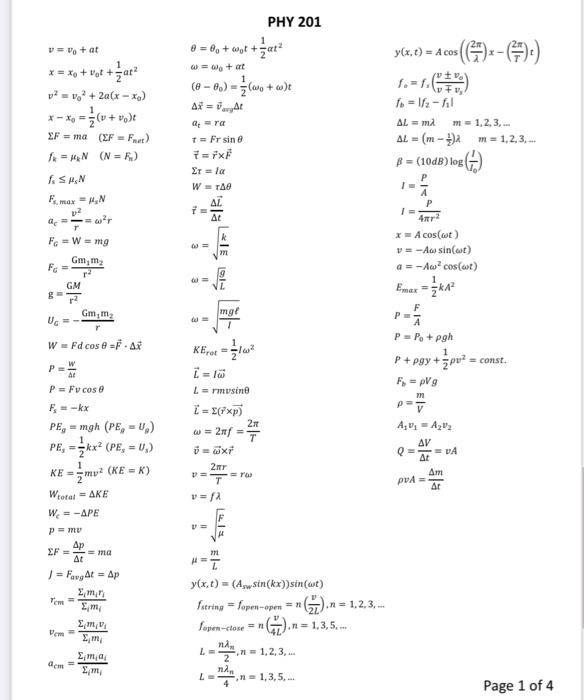 PHY 201
v = v₀ + at
x = x₀ + v₀t + 1/2 at²
v² = v₀² + 2a(x − x₀)
x − x₀ = 1/2 (v + v₀)t
ΣF = ma (ΣF = F_net)
f_k = μ_kN (N = F_n)
f_s ≤ μ_sN
F_s,max = μ_sN
a_c = v²/r = ω²r
F_G = W = mg
F_G = Gm₁m₂/r²
g = GM/r²
U_G = − Gm₁m₂/r
W = Fd cos θ = F⃗ · Δx⃗
P = W/Δt
P = Fv cos θ
F_s = −kx
PE_g = mgh (PE_g = U_g)
PE_s = 1/2 kx² (PE_s = U_s)
KE = 1/2 mv² (KE = K)
W_total = ΔKE
W_c = −ΔPE
p = mv
ΣF = Δp/Δt = ma
J = F_avgΔt = Δp
r_cm = Σᵢmᵢrᵢ/Σᵢmᵢ
v_cm = Σᵢmᵢvᵢ/Σᵢmᵢ
a_cm = Σᵢmᵢaᵢ/Σᵢmᵢ
θ = θ₀ + ω₀t + 1/2 αt²
ω = ω₀ + αt
(θ − θ₀) = 1/2 (ω₀ + ω)t
Δx⃗ = v⃗_avgΔt
a_t = rα
τ = Fr sin θ
τ⃗ = r⃗×F⃗
Στ = Iα
W = τΔθ
τ⃗ = ΔL⃗/Δt
ω = √(k/m)
ω = √(g/L)
ω = √(mgℓ/I)
KE_rot = 1/2 Iω²
L⃗ = Iω⃗
L = rmvsinθ
L⃗ = Σ(r⃗×p⃗)
ω = 2πf = 2π/T
v⃗ = ω⃗×r⃗
v = 2πr/T = rω
v = fλ
v = √(F/μ)
μ = m/L
y(x,t) = (A_sw sin(kx))sin(ωt)
f_string = f_open−open = n(v/2L), n = 1, 2, 3, ...
f_open−close = n(v/4L), n = 1, 3, 5, ...
L = nλ_n/2, n = 1, 2, 3, ...
L = nλ_n/4, n = 1, 3, 5, ...
y(x,t) = A cos((2π/λ)x − (2π/T)t)
f_o = f_s((v ± v_o)/(v ∓ v_s))
f_b = |f₂ − f₁|
ΔL = mλ m = 1, 2, 3, ...
ΔL = (m − 1/2)λ m = 1, 2, 3, ...
β = (10dB) log(I/I₀)
I = P/A
I = P/4πr²
x = A cos(ωt)
v = −Aω sin(ωt)
a = −Aω² cos(ωt)
E_max = 1/2 kA²
P = F/A
P = P₀ + ρgh
P + ρgy + 1/2 ρv² = const.
F_b = ρVg
ρ = m/V
A₁v₁ = A₂v₂
Q = ΔV/Δt = vA
ρvA = Δm/Δt
Page 1 of 4